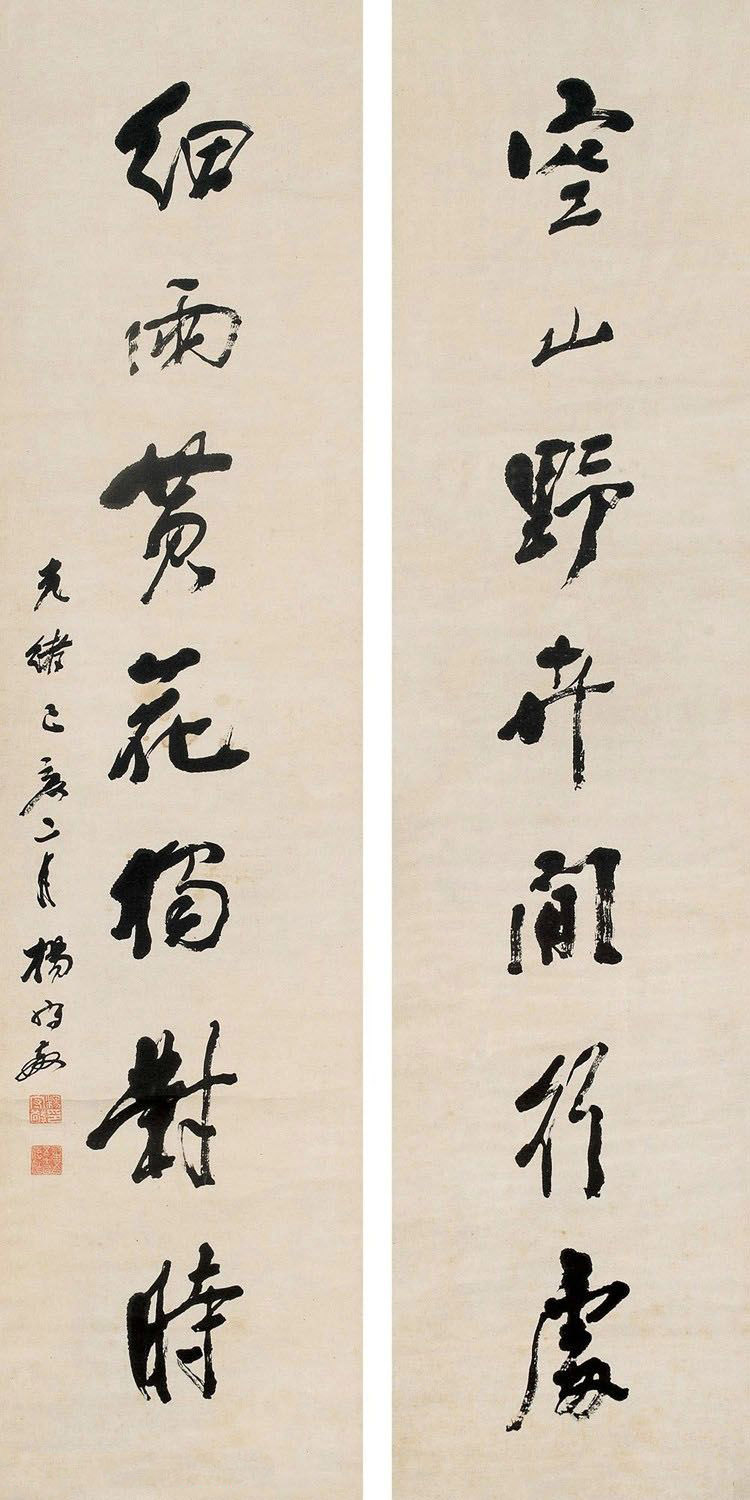 空山野卉閒行處
細雨黃花獨對時
光緒己亥二月楊守敬